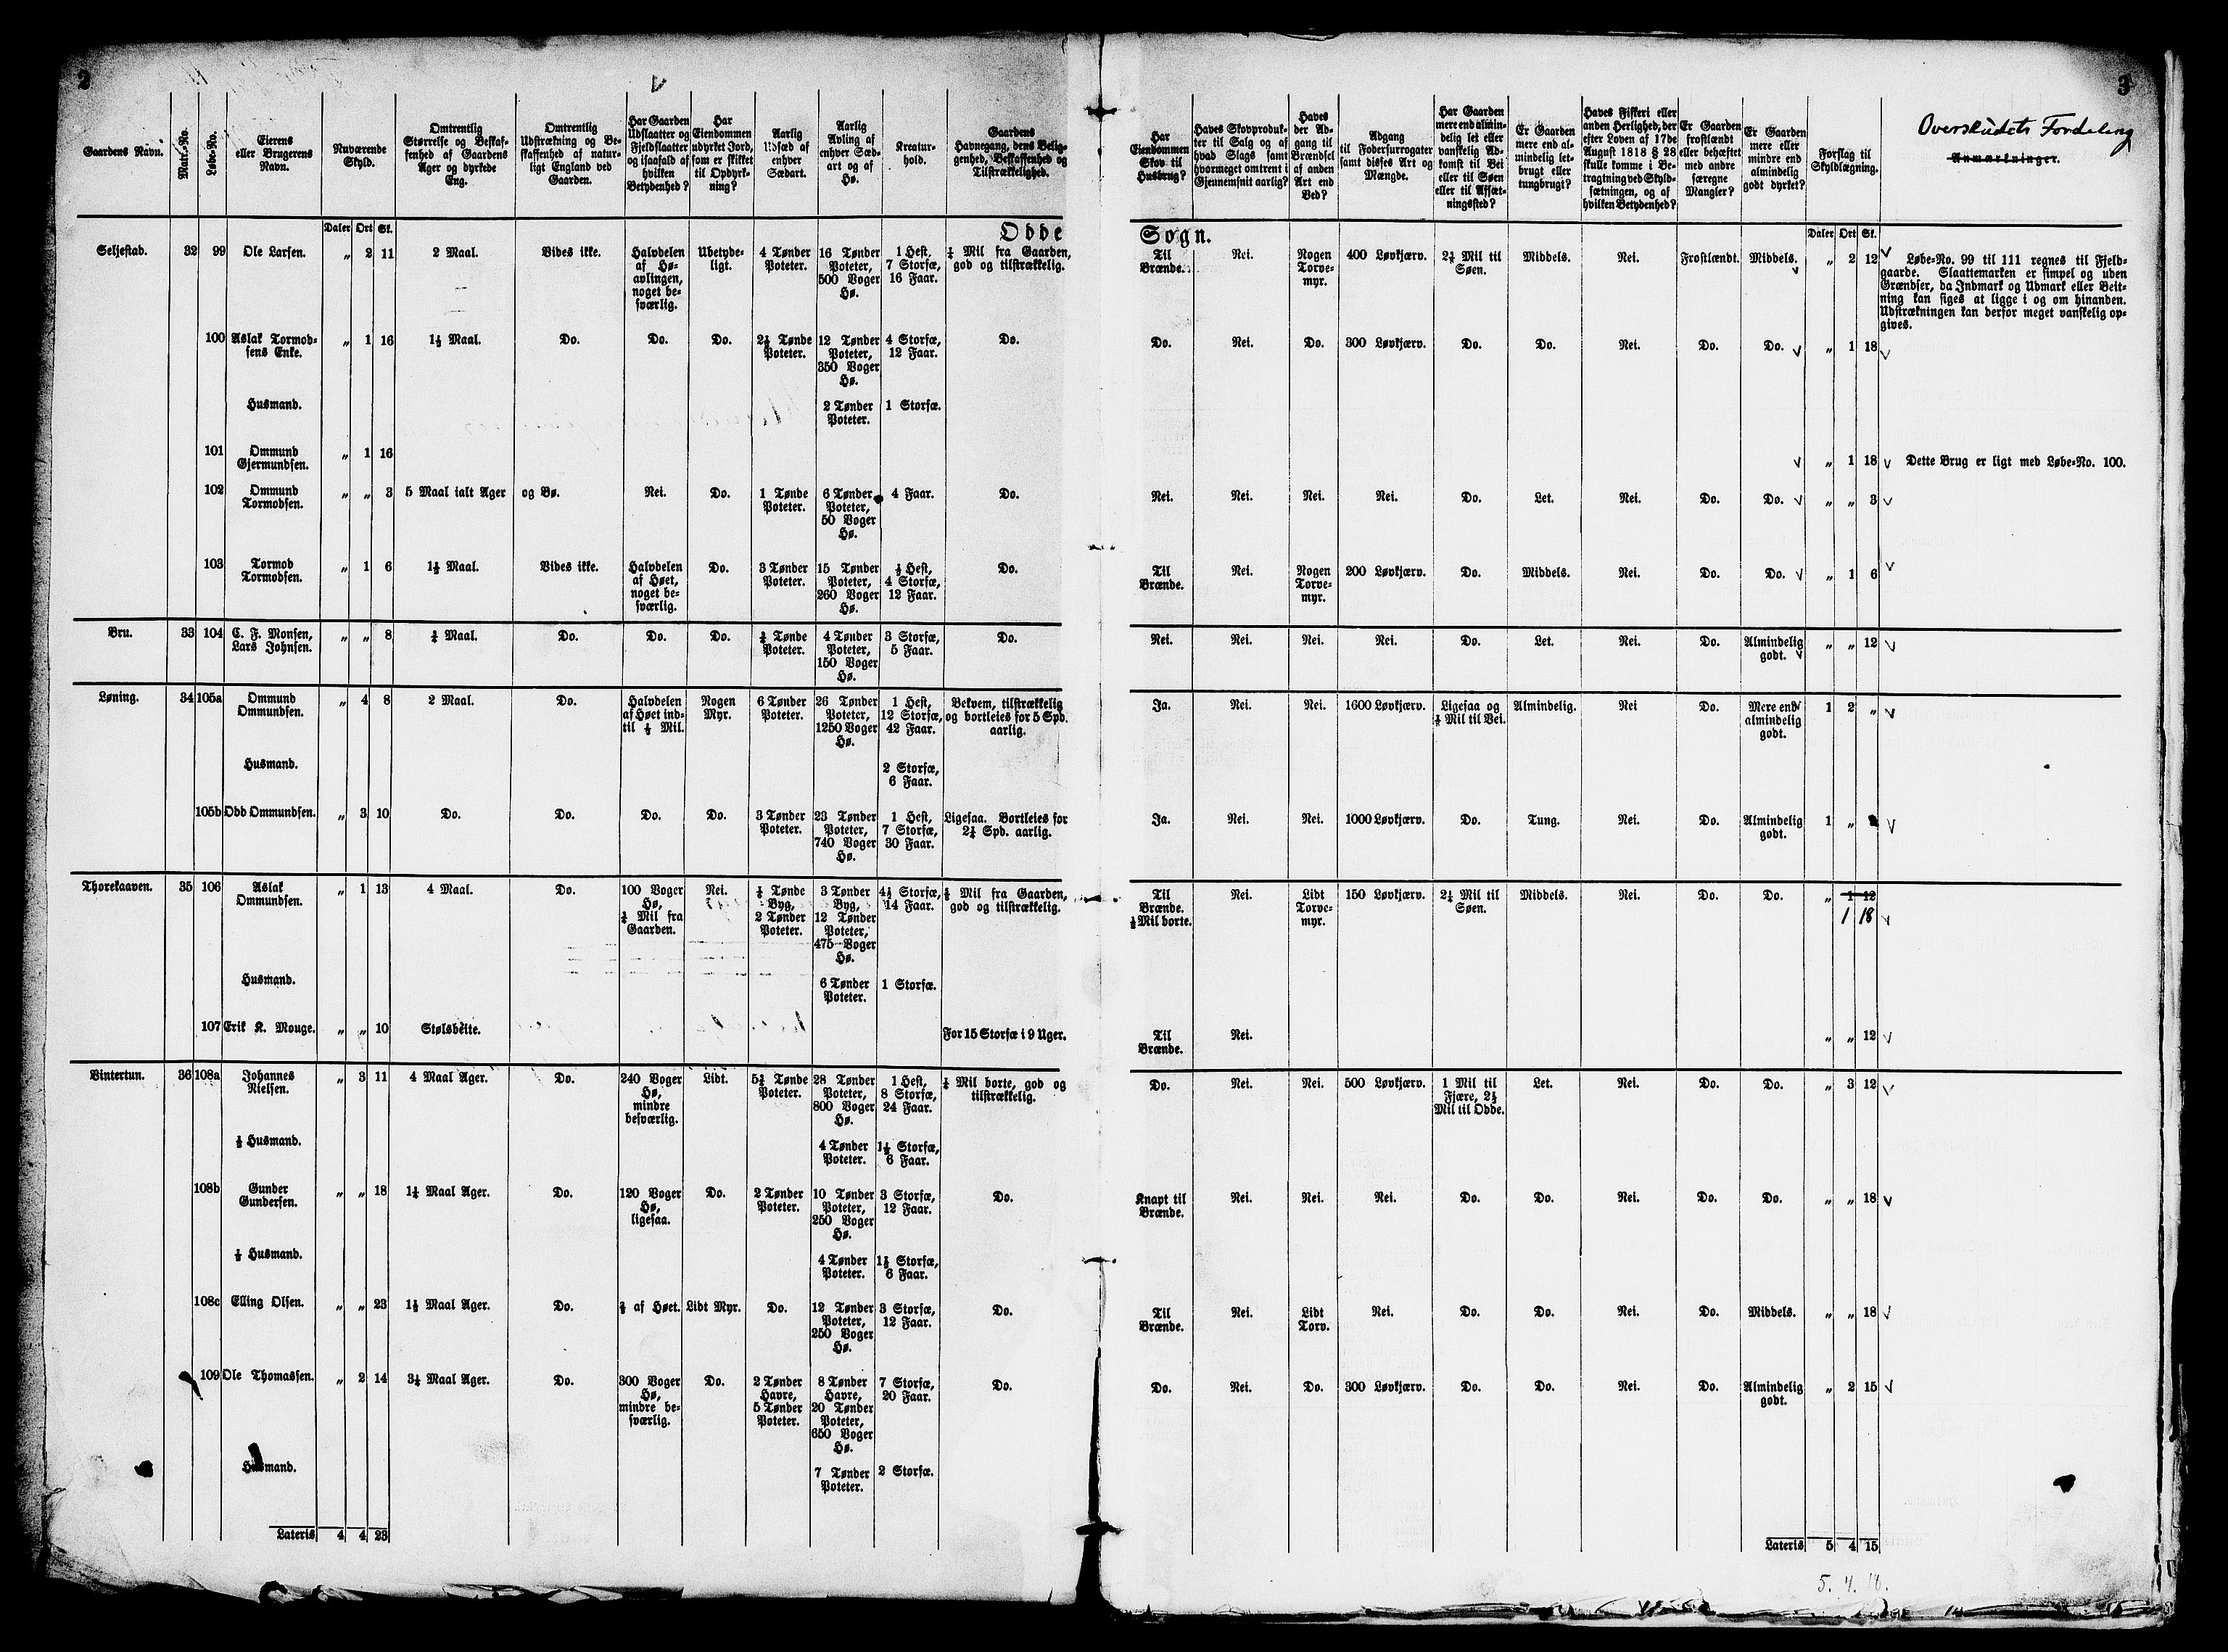 2
Gaardens Navn.
Matr.-No.
Løbe-No.
Eierens
eller Brugerens
Navn.
Nuværende
Skyld.
Omtrentlig
Størrelse og Beskaf-
fenhed af Gaardens
Ager og dyrkede
Eng.
Omtrentlig
Udstrækning og Be-
skaffenhed af natur-
ligt England ved
Gaarden.
Har Gaarden
Udslaatter og
Fjeldslaatter
og isaafald af
hvilken
Betydenhed?
Har
Eiendommen
udyrket Jord,
som er skikket
til Opdyrk-
ning?
Aarlig
Udsæd af
enhver
Sædart.
Aarlig
Avling af
enhver Sæd-
art og af
Hø.
Kreatur-
hold.
Gaardens
Havnegang, dens Belig-
genhed, Beskaffenhed og
Tilstrækkelighed.
Daler Ort Sk.
Odde
Seljestad. 32 99 Ole Larsen. „ 2 11 2 Maal. Vides ikke. Halvdelen Ubetyde- 4 Tønder 16 Tønder 1 Hest, Mil fra Gaarden,
af Hø- ligt. Poteter. Poteter, 7 Storfæ, god og tilstrækkelig.
avlingen, 500 Voger 16 Faar.
noget be- Hø.
sværlig.
100 Aslak Tormod- „ 1 16 Maal. Do. Do. Do. Tønde 12 Tønder 4 Storfæ, Do.
sens Enke. Poteter. Poteter, 12 Faar.
350 Voger
Hø.
Husmand. 2 Tønder 1 Storfæ.
Poteter.
101 Ommund „ 1 16
Gjermundsen.
102 Ommund „ „ 3 5 Maal ialt Ager og Bø. Nei. Do. 1 Tønde 6 Tønder 4 Faar. Do.
Tormodsen. Poteter. Poteter,
50 Voger
Hø.
103 Tormod „ 1 6 Maal. Vides ikke. Halvdelen Do. 3 Tønder 15 Tønder Hest, Do.
Tormodsen. af Høet, Poteter. Poteter, 4 Storfæ,
noget be- 260 Voger 12 Faar.
sværlig. Hø.
Bru. 33 104 C. F. Monsen, „ „ 8 Maal. Do. Do. Do. Tønde 4 Tønder 3 Storfæ, Do.
Lars Johnsen. Poteter. Poteter, 5 Faar.
150 Voger
Hø.
Løning. 34 105a Ommund „ 4 8 2 Maal. Do. Halvdelen Nogen 6 Tønder 26 Tønder 1 Hest, Bekvem, tilstrækkelig
Ommundsen. af Høet ind- Myr. Poteter. Poteter, 12 Storfæ, og bortleies for 5 Spd.
til Mil. 1250 Voger 42 Faar. aarlig.
Hø.
Husmand. 2 Storfæ,
6 Faar.
105b Odd Ommundsen. „ 3 10 Do. Do. Do. Do. 3 Tønder 23 Tønder 1 Hest, Ligesaa. Bortleies for
Poteter. Poteter, 7 Storfæ, Spd. aarlig.
740 Voger 30 Faar.
Hø.
Thorekaaven. 35 106 Aslak „ 1 13 4 Maal. Do. 100 Voger Nei. Tønde 3 Tønder 4½ Storfæ, Mil fra Gaarden,
Ommundsen. Hø, Byg, Byg, 14 Faar. god og tilstrækkelig.
Mil fra 2 Tønder 12 Tønder
Gaarden. Poteter. Poteter,
475 Voger
Hø.
Husmand. 6 Tønder 1 Storfæ.
Poteter.
107 Erik K. Mouge. „ „ 10 Stølsbeite. For 15 Storfæ i 9 Uger.
Vintertun. 36 108a Johannes „ 3 11 4 Maal Ager. Do. 240 Voger Lidt. Tønde 28 Tønder 1 Hest, Mil borte, god og
Nielsen. Hø, Poteter. Poteter, 8 Storfæ, tilstrækkelig.
mindre 800 Voger 24 Faar.
besværlig. Hø.
½ Husmand. 4 Tønder 1½ Storfæ,
Poteter. 6 Faar.
108b Gunder „ „ 18 Maal Ager. Do. 120 Voger Do. 2 Tønder 10 Tønder 3 Storfæ, Do.
Gundersen. Hø, Poteter. Poteter, 12 Faar.
ligesaa. 250 Voger
Hø.
½ Husmand. 4 Tønder 1½ Storfæ,
Poteter. 6 Faar.
108c Elling Olsen. „ „ 23 Maal Ager. Do. af Høet. Lidt Myr. Do. 12 Tønder 3 Storfæ, Do.
Poteter, 12 Faar.
250 Voger
Hø.
109 Ole Thomassen. „ 2 14 Maal Ager. Do. 300 Voger Do. 2 Tønder 8 Tønder 7 Storfæ, Do.
Hø, Havre, Havre, 20 Faar.
mindre be- 5 Tønder 20 Tønder
sværlig. Poteter. Poteter,
650 Voger
Hø.
Husmand. 7 Tønder 2 Storfæ.
Poteter.
Lateris 4 4 23
3
Har
Eiendommen
Skov til
Husbrug?
Haves Skovproduk-
ter til Salg og af
hvad Slags samt
hvormeget omtrent i
Gjennemsnit aarlig?
Haves
der Ad-
gang til
Brændsel
af anden
Art end
Ved?
Adgang
til Foderfurrogater
samt disses Art og
Mængde.
Har Gaarden
mere end almin-
delig let eller
vanskelig Ad-
komst til Vei
eller til Søen
eller til Afsæt-
ningssted?
Er Gaarden
mere end al-
mindelig let-
brugt eller
tungbrugt?
Haves Fiskeri eller
anden Herlighed, der
efter Loven af 17de
August 1818 § 28
skulle komme i Be-
tragtning ved Skyld-
sætningen, og af
hvilken Betydenhed?
Er Gaarden
frostlændt
eller behæftet
med andre
særegne
Mangler?
Er Gaarden
mere eller
mindre end
almindelig
godt dyrket?
Forslag til
Skyldlægning.
Overskudets Fordeling
Anmærkninger.
Sogn.
Daler Ort Sk.
Til Nei. Nogen 400 Løvkjærv. Mil til Middels. Nei. Frostlændt. Middels. „ 2 12 Løbe-No. 99 til 111 regnes til Fjeld-
Brænde. Torve- Søen. gaarde. Slaattemarken er simpel og uden
myr. Grændser, da Indmark og Udmark eller Beit-
ning kan siges at ligge i og om hinanden.
Udstrækningen kan derfor meget vanskelig op-
gives.
Do. Nei. Do. 300 Løvkjærv. Do. Do. Nei. Do. Do. „ 1 18
„ 1 18 Dette Brug er ligt med Løbe-No. 100.
Nei. Nei. Nei. Nei. Do. Let. Nei. Do. Do. „ „ 3
Til Nei. Nogen 200 Løvkjærv. Do. Middels. Nei. Do. Do. „ 1 6
Brænde. Torve-
myr.
Nei. Nei. Nei. Nei. Do. Let. Nei. Do. Almindelig „ „ 12
godt.
Ja. Nei. Nei. 1600 Løvkjærv. Ligesaa og Almindelig. Nei Do. Mere end 1 2 „
Mil til Vei. almindelig
godt.
Ja. Nei. Nei. 1000 Løvkjærv. Do. Tung. Nei. Do. Almindelig 1 „
godt.
Til Nei. Lidt 150 Løvkjærv. Mil til Middels. Nei. Do. Do. „ 1 12
Brænde. Torve- Søen. 1 18
Mil borte. myr.
Til Nei. „ „ 12
Brænde.
Do. Nei. Nei. 500 Løvkjærv. 1 Mil til Let. Nei. Do. Do. „ 3 12
Fjære,
Mil til Odde.
Knapt til Nei. Nei. Nei. Do. Do. Nei. Do. Do. „ „ 18
Brænde.
Til Nei. Lidt Nei. Do. Do. Nei. Do. Middels. „ „ 18
Brænde. Torv.
Do. Nei. Do. 300 Løvkjærv. Do. Do. Nei. Do. Almindelig „ 2 15
godt.
Lateris 5 4 15